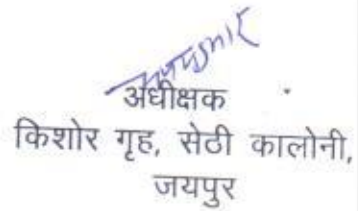 अधीक्षक
किशोर गृह, सेठी कालोनी,
जयपुर